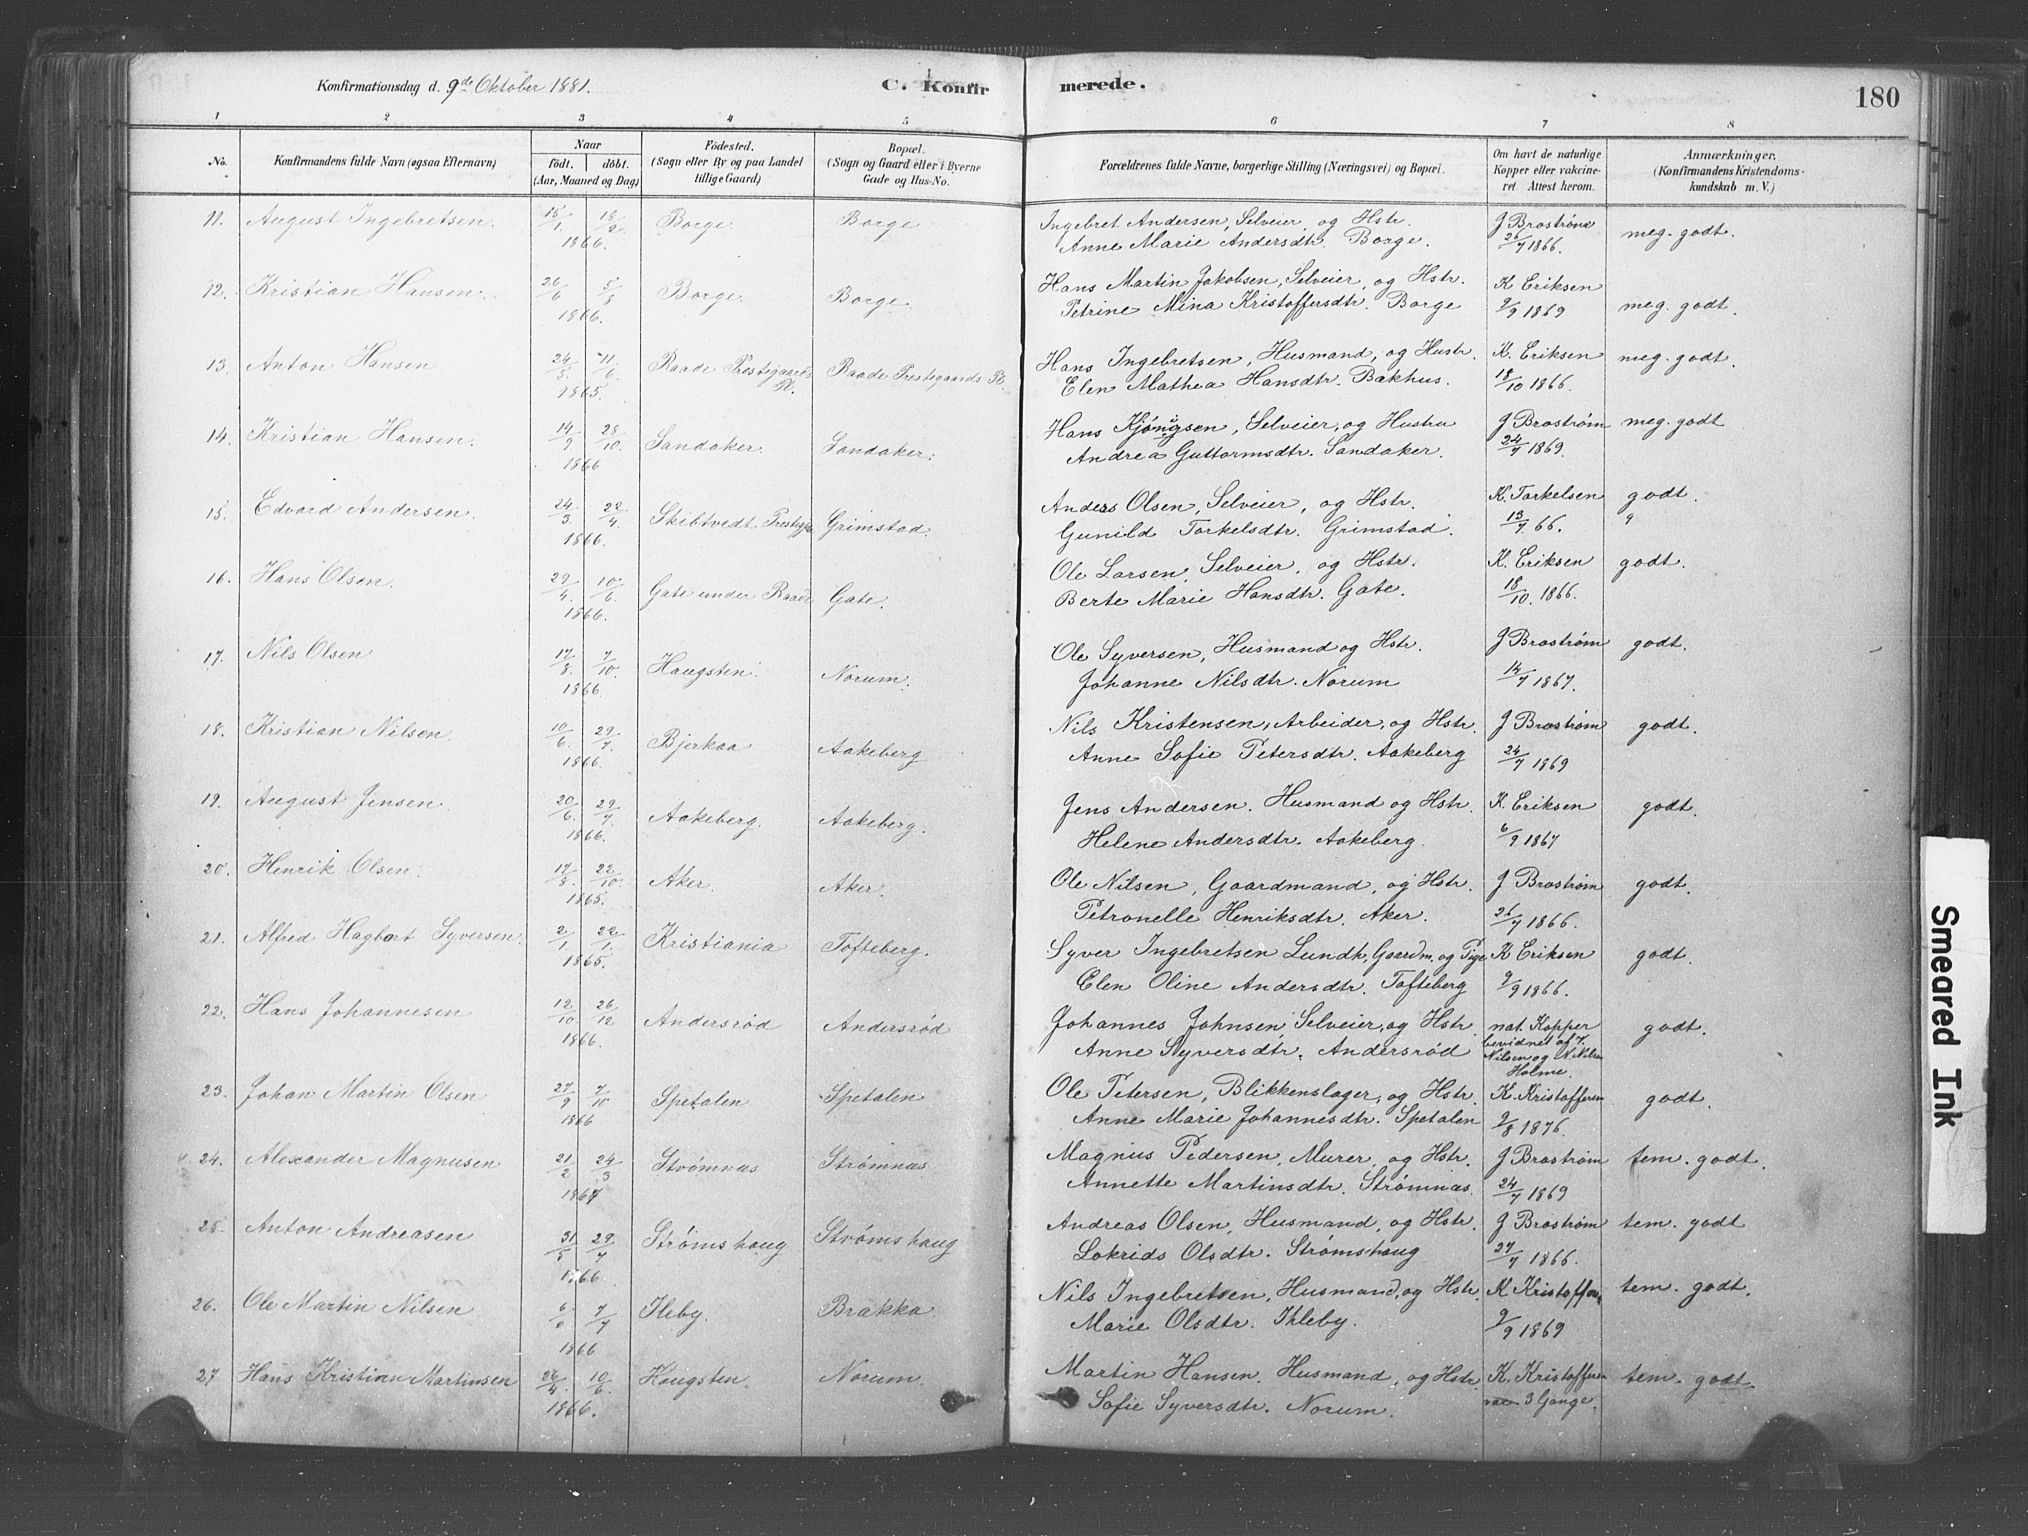 Konfirmationsdag d. 9de Oktober 1881.
C. Konfirmerede.
180
1 2 3 4 5 6 7 8
No.
Konfirmandens fulde Navn (ogsaa Efternavn)
Naar
födt. döbt.
(Aar, Maaned og Dag)
Födested.
(Sogn eller By og paa Landet
tillige Gaard)
Bopæl.
(Sogn og Gaard eller i Byerne
Gade og Hus-No.
Forældrenes fulde Navne, borgerlige Stilling (Næringsvei) og Bopæl.
Om havt de naturlige
Kopper eller vakcine-
ret. Attest herom.
Anmærkninger.
(Konfirmandens Kristendoms-
kundskab m. V.)
11. August Ingebretsen. 15/1 18/2 1866. Borge. Borge
Ingebret Andersen, Selveier, og Hstr.
Anne Marie Andersdtr. Borge.
J Brostrøm 26/7 1866. meg. godt.
12. Kristian Hansen. 26/6 5/8 1866. Borge. Borge.
Hans Martin Jakobsen, Selveier, og Hstr.
Petrine Mina Kristoffersdtr. Borge
K Eriksen 9/9 1869 meg. godt.
13. Anton Hansen 24/5 11/6 1865. Raade Prestegaards Pl. Raade Prestegaards Pl.
Hans Ingebretsen, Husmand, og Hustr.
Elen Mathea Hansdtr. Bakhus.
K. Eriksen 18/10 1866. meg. godt.
14. Kristian Hansen. 14/9 28/10 1866 Sandaker. Sandaker.
Hans Kjønigsen, Selveier, og Hustru
Andrea Guttormsdtr. Sandaker.
J Brostrøm 24/7 1869. meg. godt
15. Edvard Andersen. 24/3 22/4 1866. Skibtvedt Prestegj. Grimstad.
Anders Olsen, Selveier, og Hstr.
Gunild Torkelsdtr. Grimstad.
K. Torkelsen 13/7 66. godt.
16. Hans Olsen. 29/4 10/6 1866. Gate under Raade Gate.
Ole Larsen, Selveier, og Hstr.
Berte Marie Hansdtr. Gate.
K. Eriksen 18/10. 1866. godt.
17. Nils Olsen 17/8 7/10 1866 Haugsten. Norum.
Ole Syversen, Husmand og Hstr.
Johanne Nilsdtr. Norum
J Brostrøm 14/7 1867. godt.
18. Kristian Nilsen. 10/6 29/7 1866. Bjerkaa Aakeberg
Nils Kristensen, Arbeider, og Hstr.
Anne Sofie Petersdtr. Aakeberg
J Brostrøm 24/7 1869 godt.
19. August Jensen. 20/6 29/7 1866. Aakeberg. Aakeberg.
Jens Andersen. Husmand og Hstr.
Helene Andersdtr. Aakeberg.
K. Eriksen 6/9 1867 godt.
20. Henrik Olsen. 17/8 22/10 1865. Aker. Aker.
Ole Nilsen, Gaardmand, og Hstr.
Petronelle Henriksdtr. Aker.
J Brostrøm 26/7 1866. godt.
21. Alfred Hagbart Syversen. 2/1 22/1 1865. Kristiania Tofteberg.
Syver Ingebretsen Lundk, Gaardm. og Pige
Elen Oline Andersdtr. Tofteberg
K Eriksen 9/9 1866. godt.
22. Hans Johannesen 12/10 26/12 1866. Andersrød Andersrød
Johannes Johnsen, Selveier, og Hstr.
Anne Syversdtr. Andersrød
nat. Kopper
bevidnet af
Nilsen og N. Nilsen
Holme. godt.
23. Johan Martin Olsen 27/9 7/10 1866 Spetalen Spetalen
Ole Petersen, Blikkenslager, og Hstr.
Anne Marie Johannesdtr. Spetalen
K. Kristoffersen 9/8 1876. godt.
24. Alexander Magnusen 21/2 24/3 1867 Strømnæs Strømnæs
Magnus Pedersen, Murer, og Hstr.
Annette Martinsdtr. Strømnæs.
J Brostrøm 24/7 1869 tem. godt.
25. Anton Andreasen 31/5 29/7 1866. Strømshaug Strømshaug
Andreas Olsen, Husmand, og Hstr.
Lokrids Olsdtr. Strømshaug
J Brostrøm 27/7 1866. tem. godt
26. Ole Martin Nilsen 7/7 1866 Ileby. Brakka.
Nils Ingebretsen, Husmand, og Hstr.
Marie Olsdtr. Ihleby.
K Kristoffersen 9/9 1869 tem. godt.
27 Hans Kristian Martinsen 26/4. 10/6. 1866. Haugsten. Norum.
Martin Hansen. Husmand, og Hstr.
Sofie Syversdtr. Norum.
K. Kristoffersen
vac. 3 Gange. tem. godt.
Smeared Ink